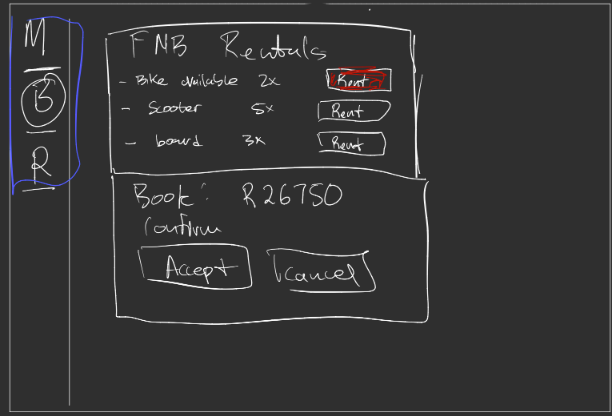 M
B
R
FNB Rentals
- Bike available 2x Rent
- Scooter 5x Rent
- board 3x Rent
Book: R26750
Confirm
Accept cancel